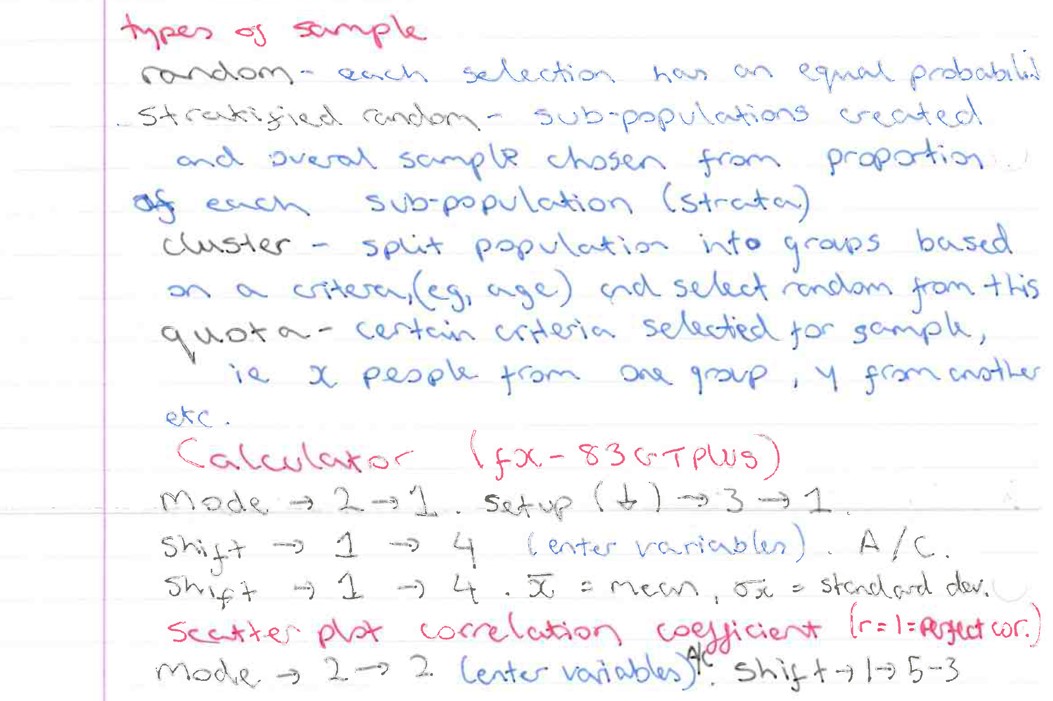 types of sample
random - each selection has an equal probabili
stratified random - sub-populations created
and overal sample chosen from proportion
of each sub-population (strata)
cluster - split population into groups based
on a critera, (eg, age) and select random from this
quota - certain criteria selected for sample,
ie x people from one group, y from another
etc.
Calculator (fx-83GT PLUS)
Mode → 2 → 1. Setup (↓) → 3 → 1.
Shift → 1 → 4 (enter variables). A/C.
Shift → 1 → 4. x̄ = mean, σx = standard dev.
Scatter plot correlation coefficient (r=1=perfect cor.)
Mode → 2 → 2 (enter variables) A/C. Shift → 1 → 5-3